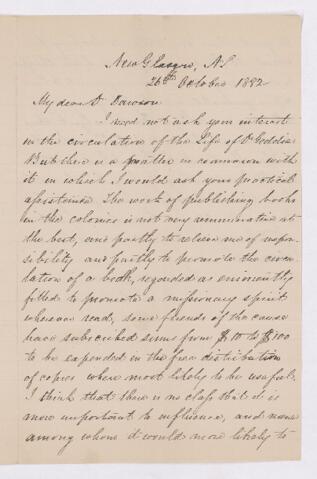 New Glasgow, N.S
26th October 1882
My dear Dr Dawson
I need not ask your interest
in the circulation of the Life of Dr Geddie.
But there is a matter in connexion with
it in which I would ask your practical
assistance. The work of publishing books
in the colonies is not very remunerative at
the best, and partly to relieve me of respon-
sibility and partly to promote the circu-
lation of a book, regarded as eminently
fitted to promote a missionary spirit
wherever read, some friends of the cause
have subscribed sums from $10 to $100
to be expended in the free distribution
of copies where most likely to be useful.
I think that there is no class that it is
more important to influence, and none
among whom it would more likely to